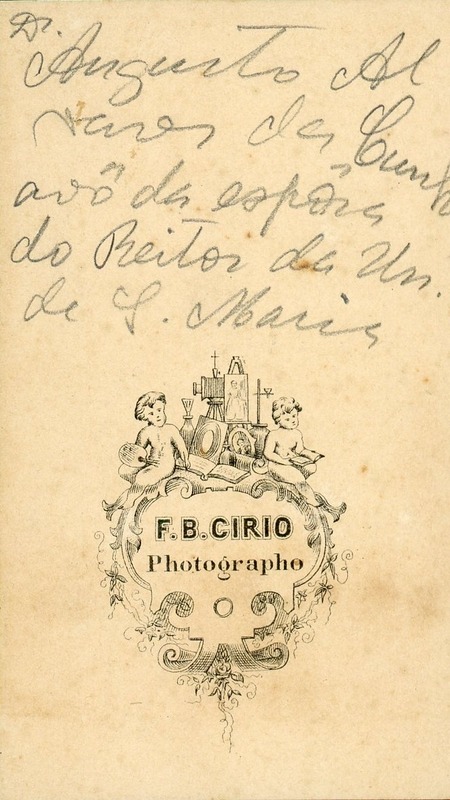 Dr.
Augusto Al
vares da Cunha
avô da espôsa
do Reitor da Un.
de S. Maria
F. B. CIRIO
Photographo